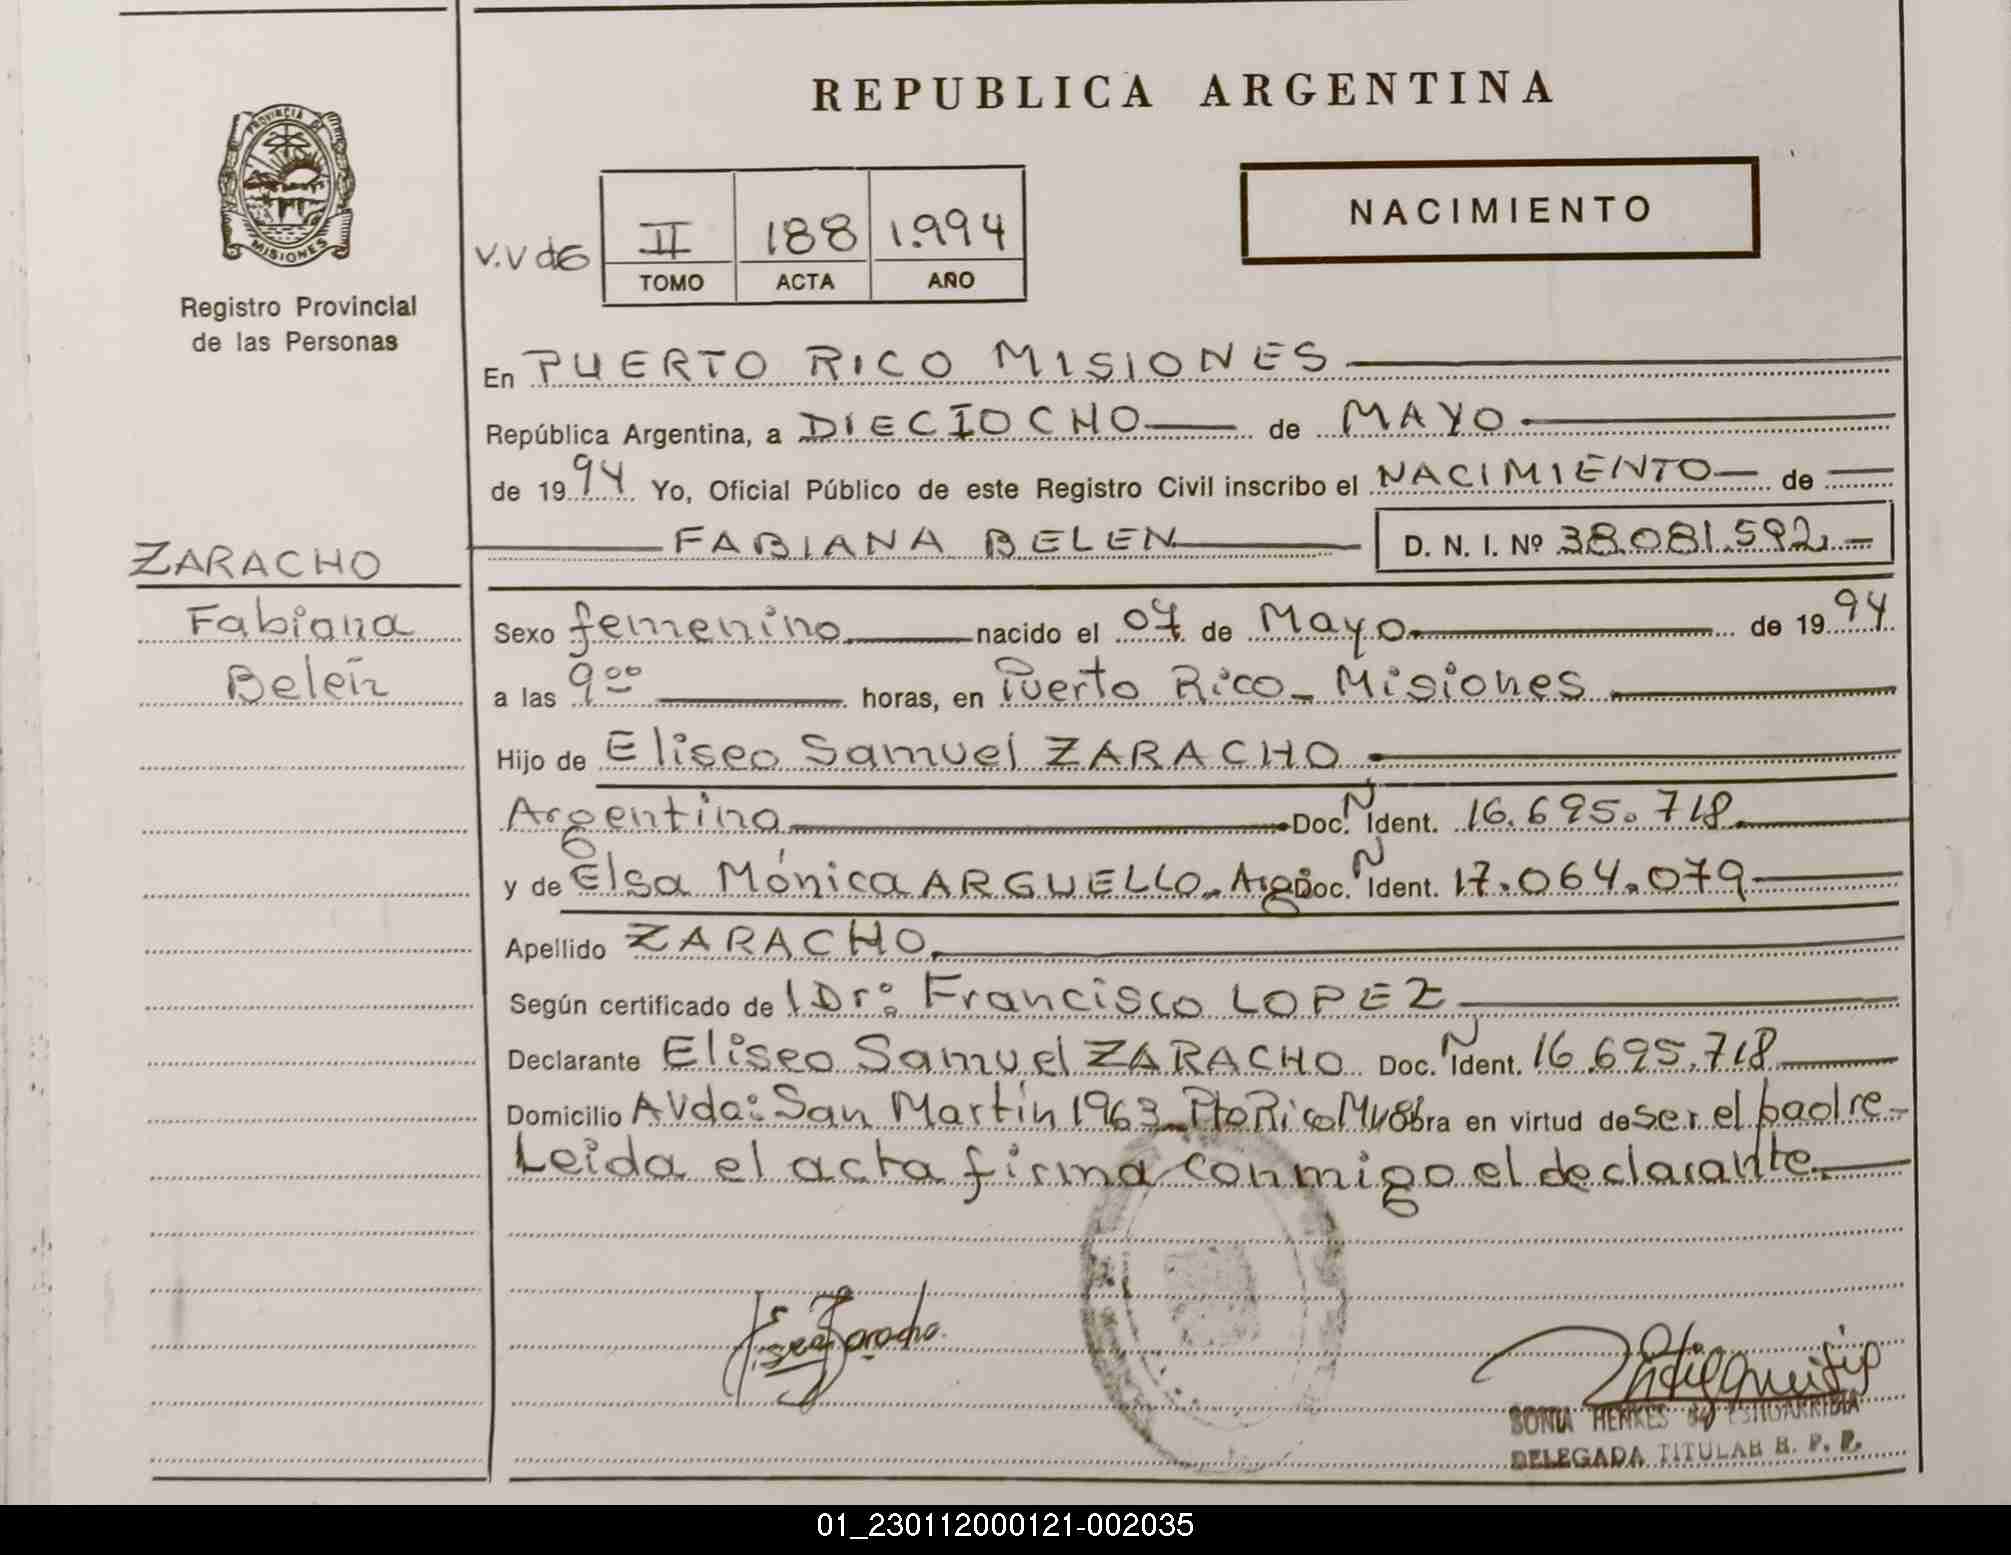 REPUBLICA ARGENTINA
PROVINCIA DE
MISIONES
Registro Provincial
de las Personas
NACIMIENTO
V.V de
II 188 1.994
TOMO ACTA AÑO
En PUERTO RICO MISIONES
República Argentina, a DIECIOCHO de MAYO
de 1994 Yo, Oficial Público de este Registro Civil inscribo el NACIMIENTO de
FABIANA BELEN D. N. I. Nº 38.081.592.-
ZARACHO
Fabiana
Belén
Sexo femenino nacido el 07 de Mayo de 1994
a las 9 00 horas, en Puerto Rico - Misiones
Hijo de Eliseo Samuel ZARACHO
Argentina Doc. N Ident. 16.695.718
y de Elsa Mónica ARGUELLO - Arg. Doc. N Ident. 17.064.079
Apellido ZARACHO
Según certificado de l Dr: Francisco LOPEZ
Declarante Eliseo Samuel ZARACHO Doc. N Ident. 16.695.718
Domicilio Avda: San Martín 1963 - Pto Rico Mns Obra en virtud de ser el padre -
Leida el acta firma conmigo el declarante.
Eliseo Zaracho.
SONIA HENKES de
DELEGADA TITULAR R. P. P.
01_230112000121-002035